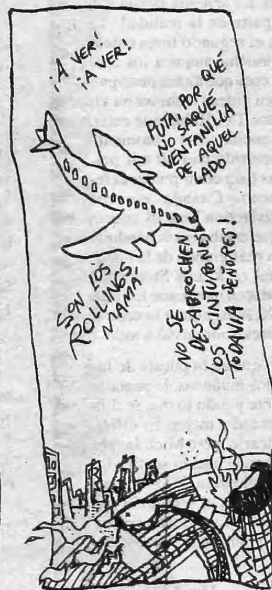 ¡A VER!
¡A VER!
PUTA, POR QUÉ
NO SAQUÉ
VENTANILLA
DE AQUEL
LADO
SON LOS
ROLLINGS
MAMÁ
NO SE
DESABROCHEN
LOS CINTURONES
TODAVIA SEÑORES!